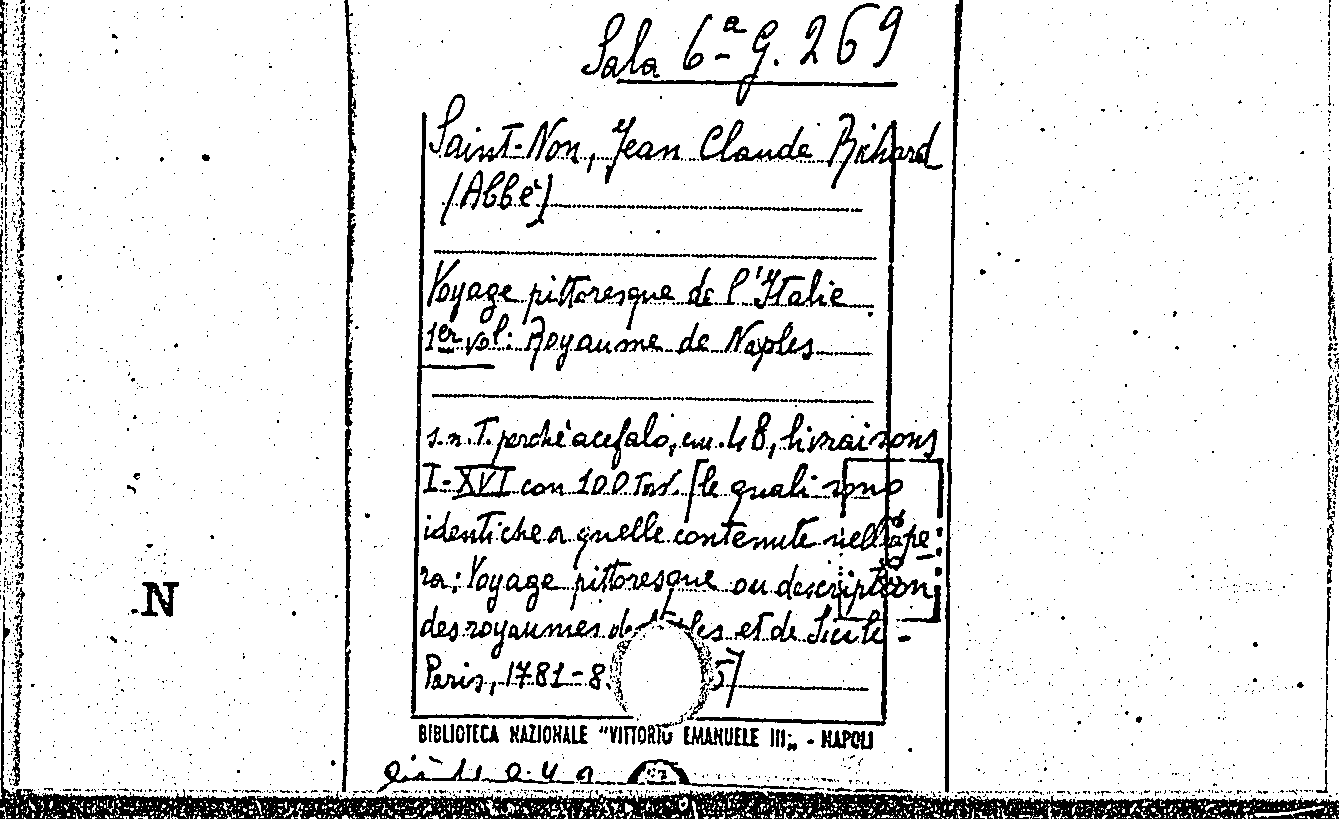 Sala 6ª G. 269
Saint-Non, Jean Claude Richard
(Abbé)
Voyage pittoresque de l'Italie
1er vol: Royaume de Naples
s.n.T. perché acefalo, 48, livraisons
I-XVI con 100 Tav. [le quali sono
identiche a quelle contenute nell'ope
ra: Voyage pittoresque ou description
des royaumes de et de Sicile -
Paris, 1781-8
BIBLIOTECA NAZIONALE "VITTORIO EMANUELE III„ - NAPOLI
N